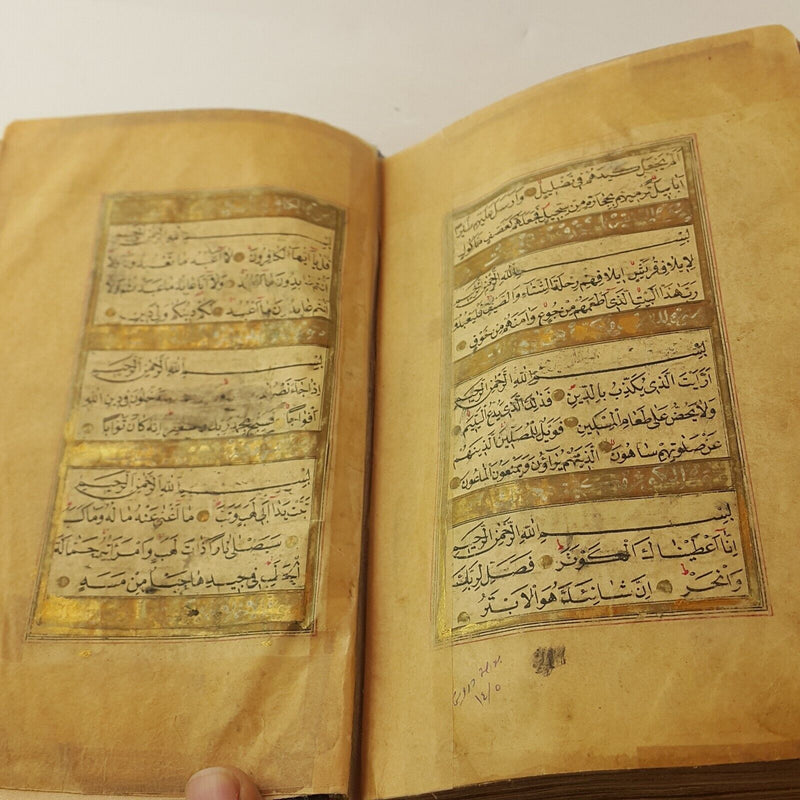 ألم يجعل كيدهم في تضليل وأرسل عليهم طيرا
أبابيل ترميهم بحجارة من سجيل فجعلهم كعصف مأكول
بسم الله الرحمن الرحيم
لإيلاف قريش إيلافهم رحلة الشتاء والصيف فليعبدوا
رب هذا البيت الذي أطعمهم من جوع وآمنهم من خوف
بسم الله الرحمن الرحيم
أرأيت الذي يكذب بالدين فذلك الذي يدع اليتيم
ولا يحض على طعام المسكين فويل للمصلين الذين هم
عن صلوتهم ساهون الذين هم يراؤن ويمنعون الماعون
بسم الله الرحمن الرحيم
إنا أعطيناك الكوثر فصل لربك
وانحر إن شانئك هو الأبتر
بسم الله الرحمن الرحيم
قل يا أيها الكافرون لا أعبد ما تعبدون ولا
أنتم عابدون ما أعبد ولا أنا عابد ما عبدتم ولا
أنتم عابدون ما أعبد لكم دينكم ولي دين
بسم الله الرحمن الرحيم
إذا جاء نصر الله يدخلون في دين الله
أفواجا فسبح بحمد ربك واستغفره إنه كان توابا
بسم الله الرحمن الرحيم
تبت يدا أبي لهب وتب ما أغنى عنه ماله وما كسب
سيصلى نارا ذات لهب وامرأته حمالة
الحطب في جيدها حبل من مسد